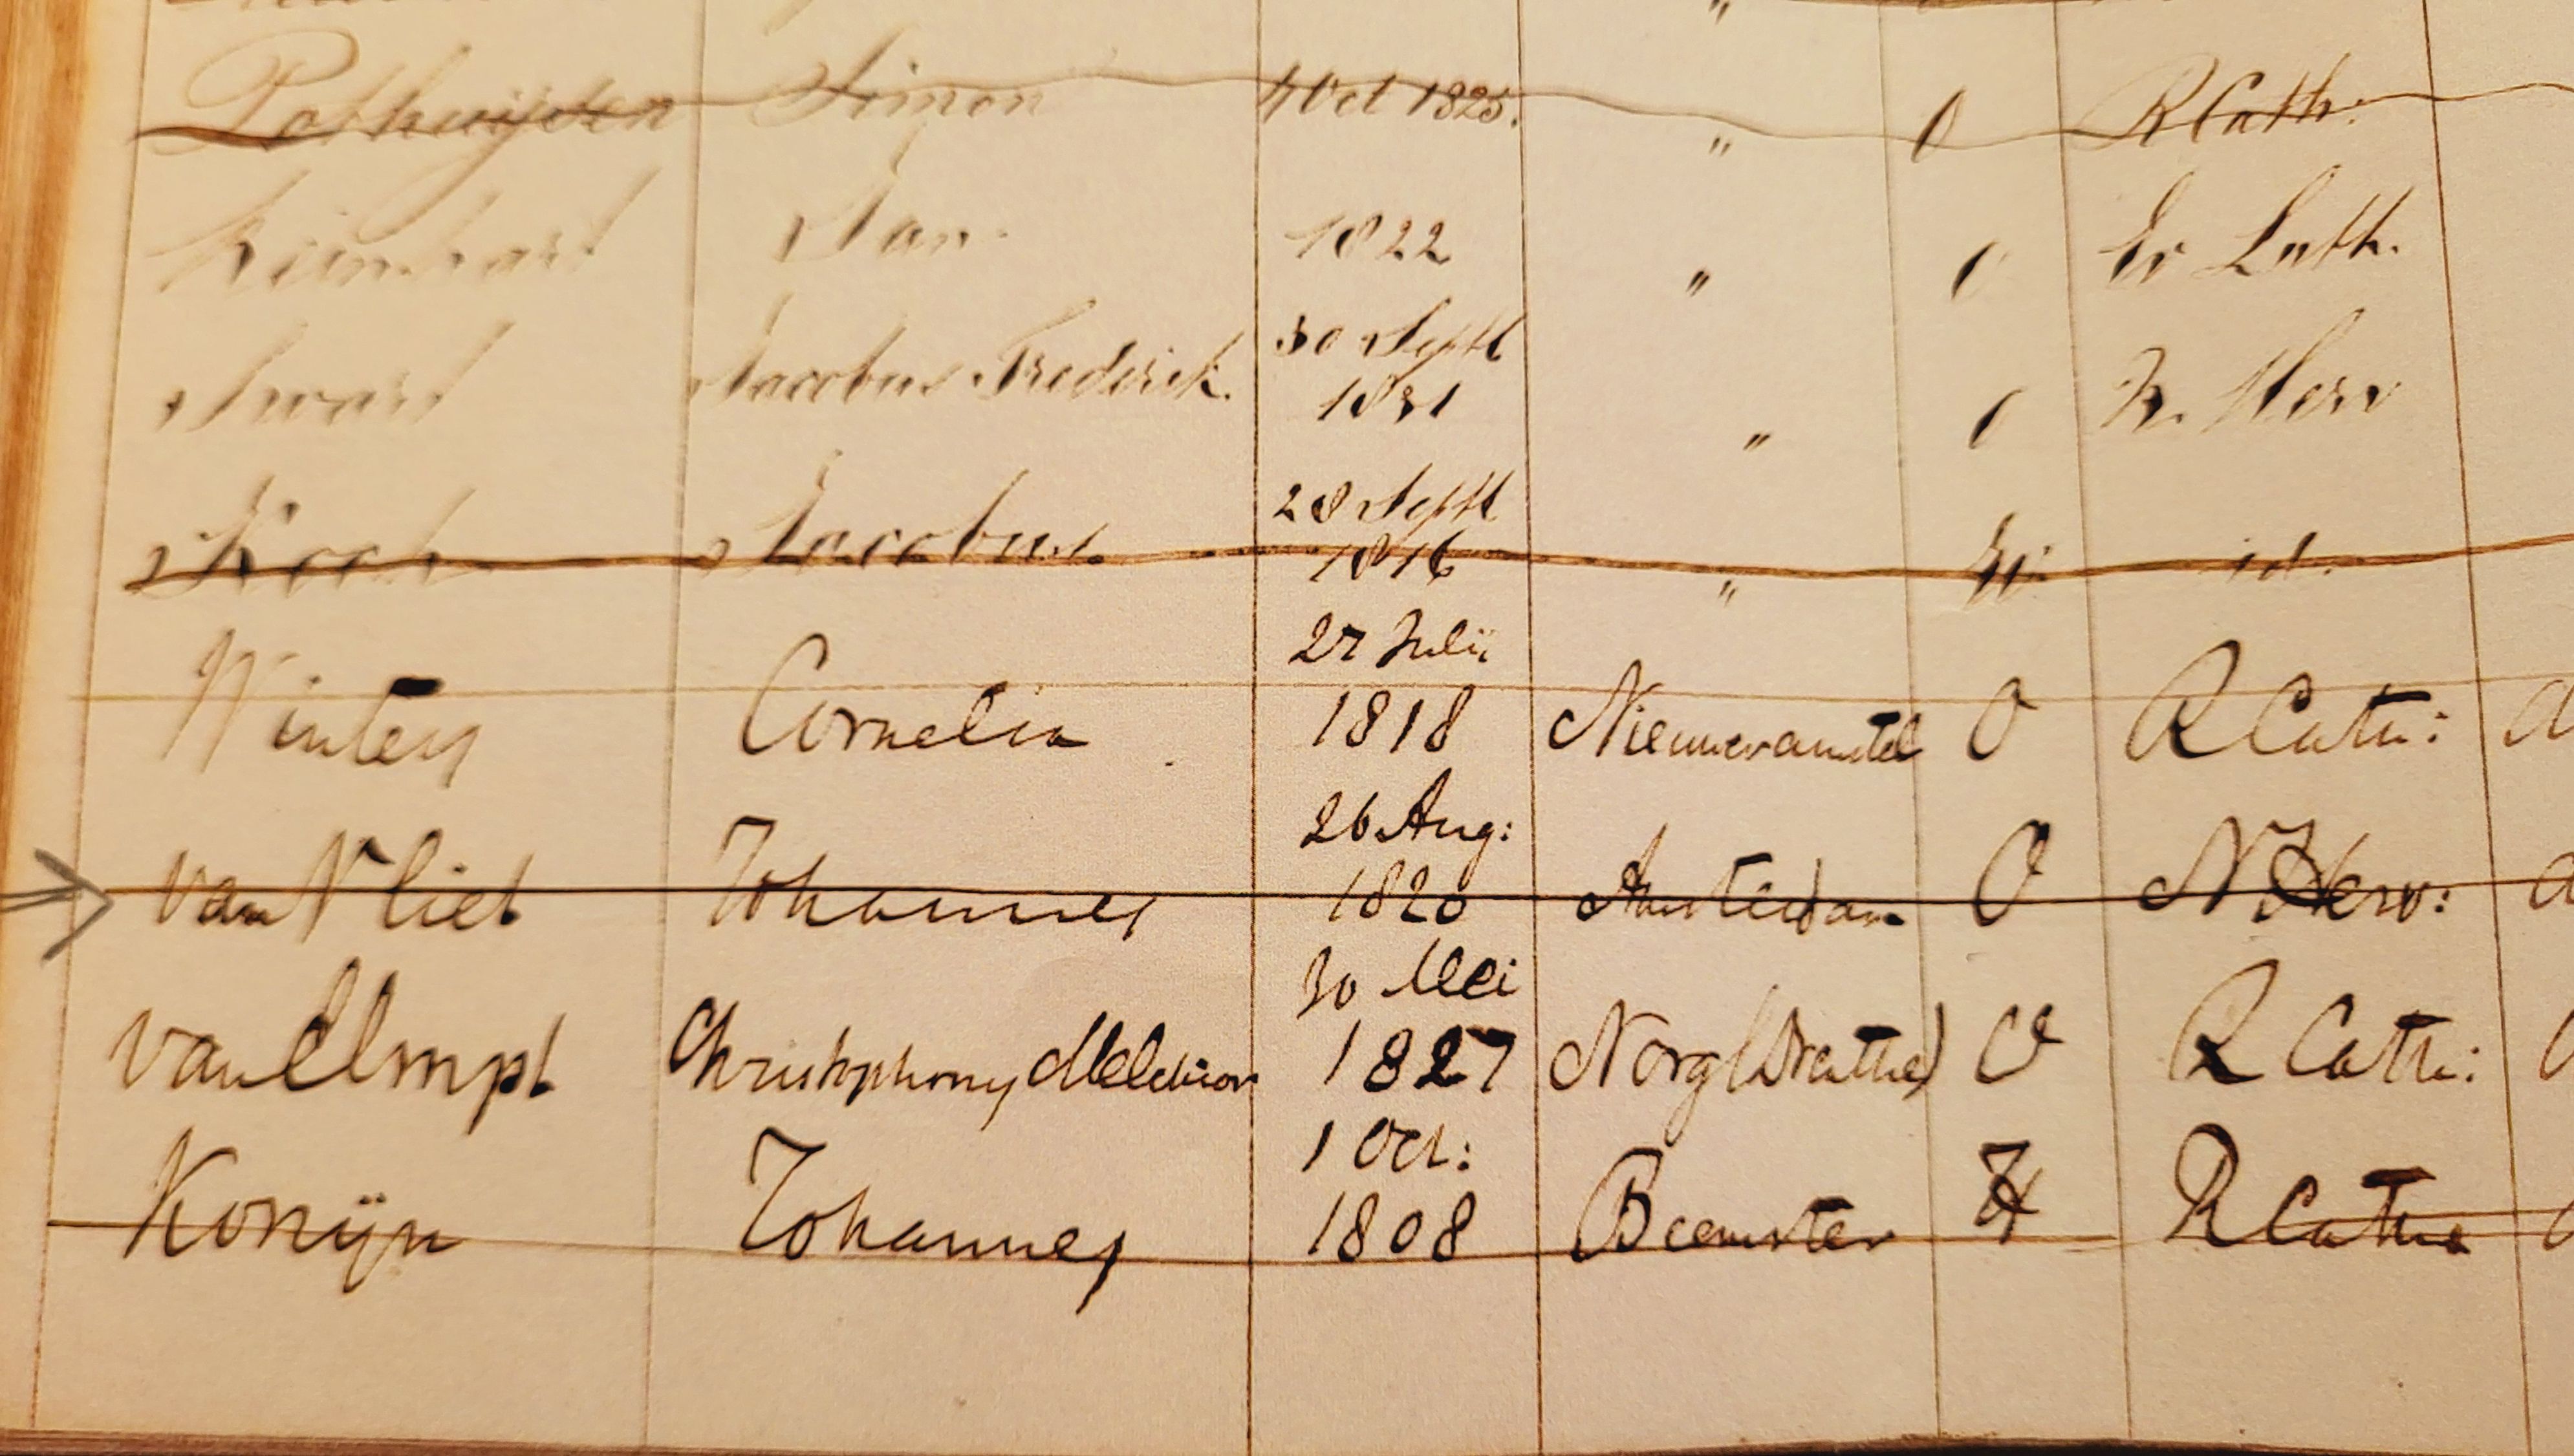 Pothuijzen Simon 4 Oct 1825. " O R Cath:
Reinhart Jan 1822 " O Ev Luth.
30 Septb
Swart Jacobus Frederik. 1831 " O N. Herv
28 Septb
Koch Jacobus. 1816 " W id.
27 Julij
Winters Cornelia 1818 Nieuweramstel O R Cath:
26 Aug:
van Vliet Johannes 1820 Amsterdam O N Herv:
30 Mei
van Elmpt Christophorus Melchior 1827 Norg (Drenthe) O R Cath:
1 Oct:
Konijn Johannes 1808 Beemster H R Cath